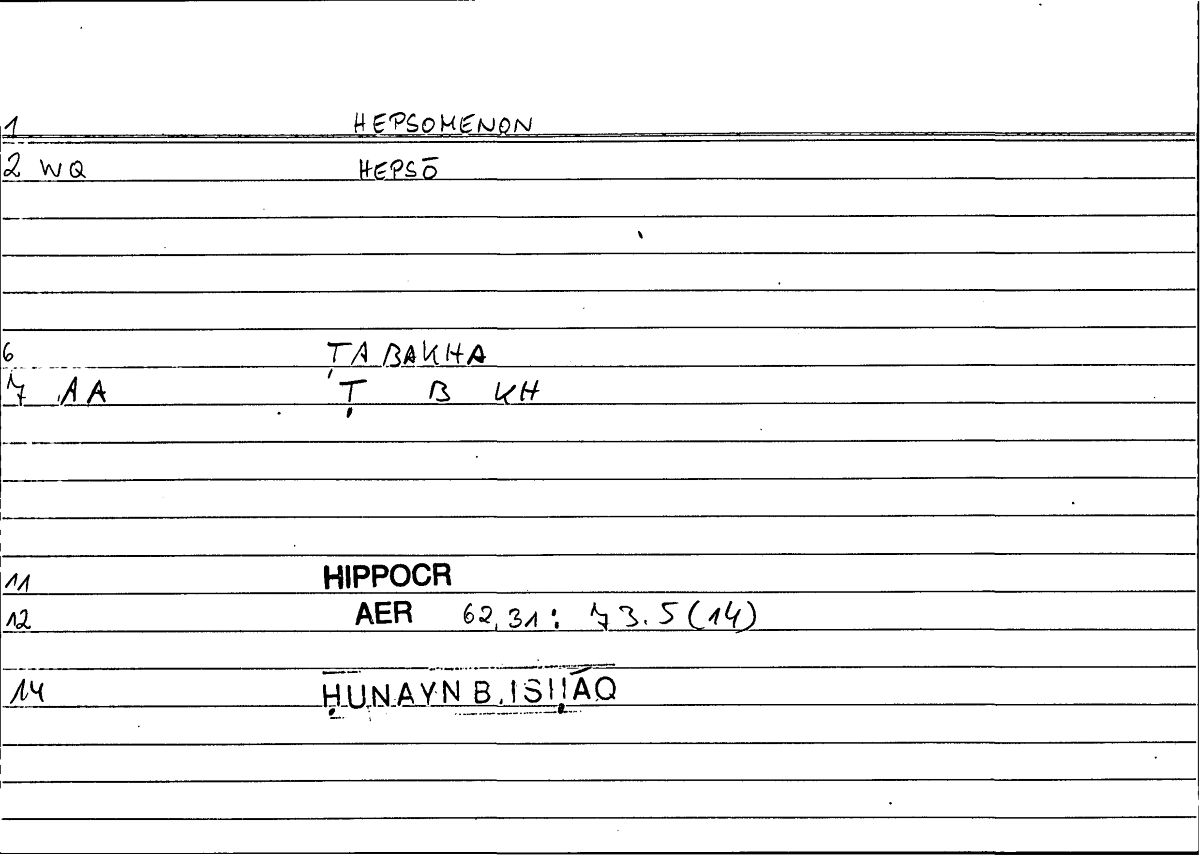 1 HEPSOMENON
2 WQ HEPSŌ
6 ṬABAKHA
7 AA Ṭ B KH
11 HIPPOCR
12 AER 62,31: 73.5 (14)
14 ḤUNAYN B. ISḤĀQ